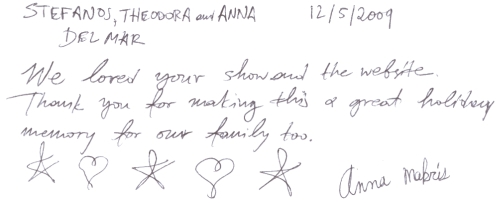 STEFANOS, THEODORA and ANNA 12/5/2009
DEL MAR
We loved your show and the website.
Thank you for making this a great holiday
memory for our family too.
Anna Makris